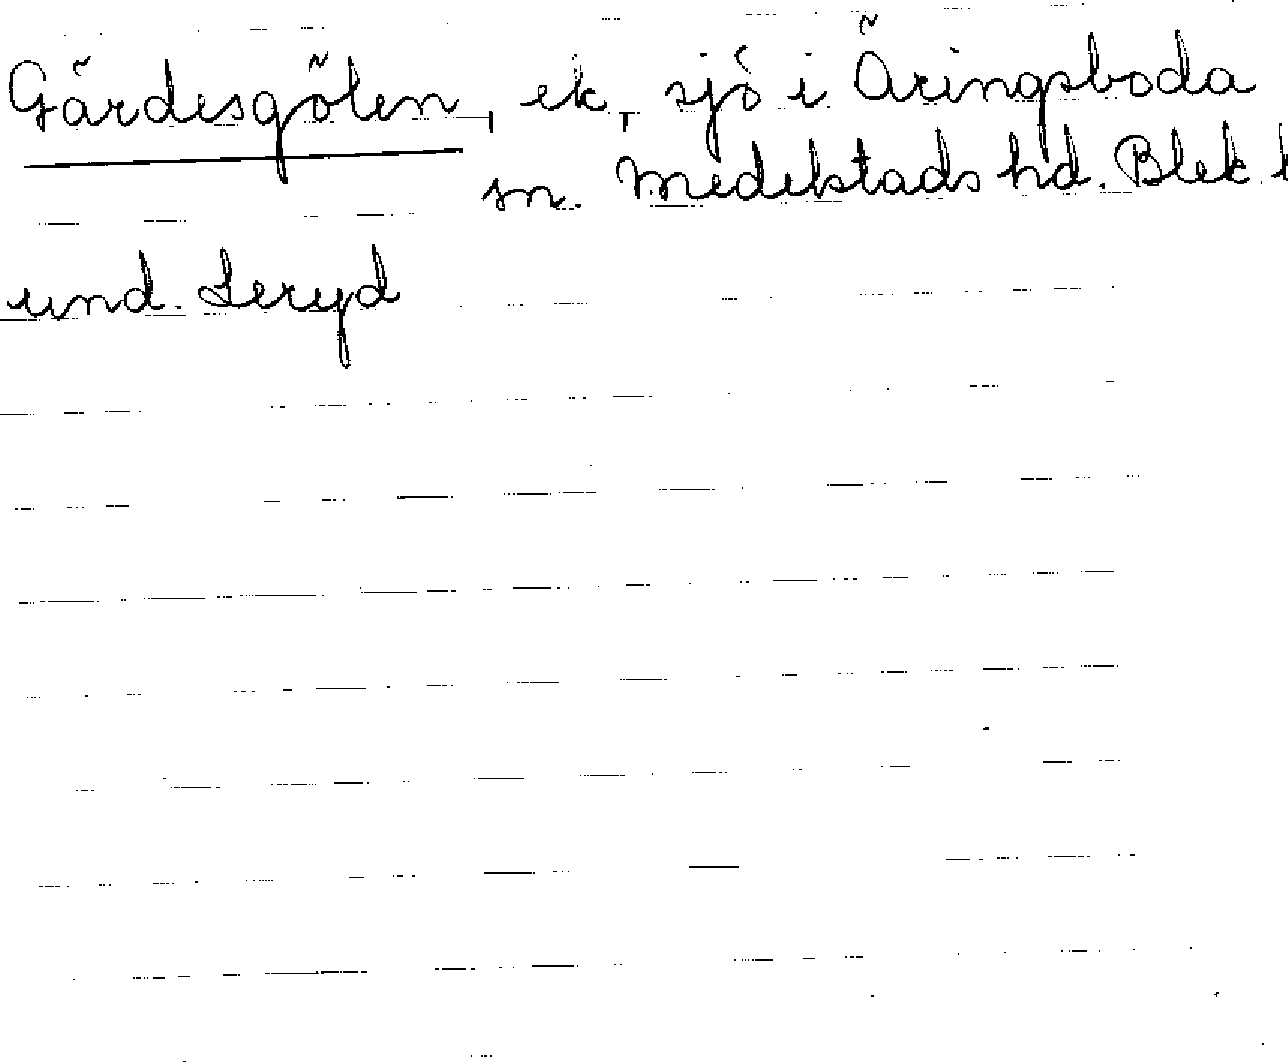 Gärdesgölen, ek, sjö i Äringsboda
sn. Medelstads hd. Blek.
und. Leryd